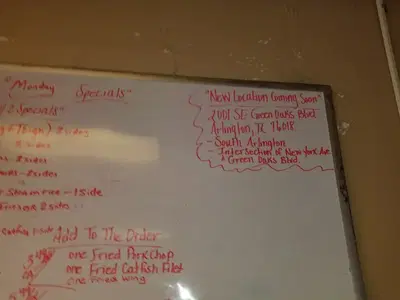 "Monday Specials"
2 Specials"
Thigh) 2 sides
2 sides
- 2 sides
- 2 sides
- 1 side
2 sides
Add To The Order
one Fried Pork Chop
one Fried Catfish Filet
one Fried Wing
"New Location Coming Soon"
2001 SE Green Oaks Blvd
Arlington, TX 76018
- South Arlington
- Intersection of New York Ave
& Green Oaks Blvd.